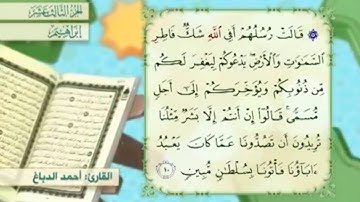 الجزء الثالث عشر
إبراهيم
۞ قَالَتْ رُسُلُهُمْ أَفِي ٱللَّهِ شَكٌّ فَاطِرِ
ٱلسَّمَٰوَٰتِ وَٱلْأَرْضِ يَدْعُوكُمْ لِيَغْفِرَ لَكُم
مِّن ذُنُوبِكُمْ وَيُؤَخِّرَكُمْ إِلَىٰٓ أَجَلٍ
مُّسَمًّى قَالُوٓا۟ إِنْ أَنتُمْ إِلَّا بَشَرٌ مِّثْلُنَا
تُرِيدُونَ أَن تَصُدُّونَا عَمَّا كَانَ يَعْبُدُ
ءَابَآؤُنَا فَأْتُونَا بِسُلْطَٰنٍ مُّبِينٍ ١٠
القارئ: أحمد الدباغ